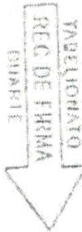 TABELIONATO
REC. DE FIRMA
DIANTE